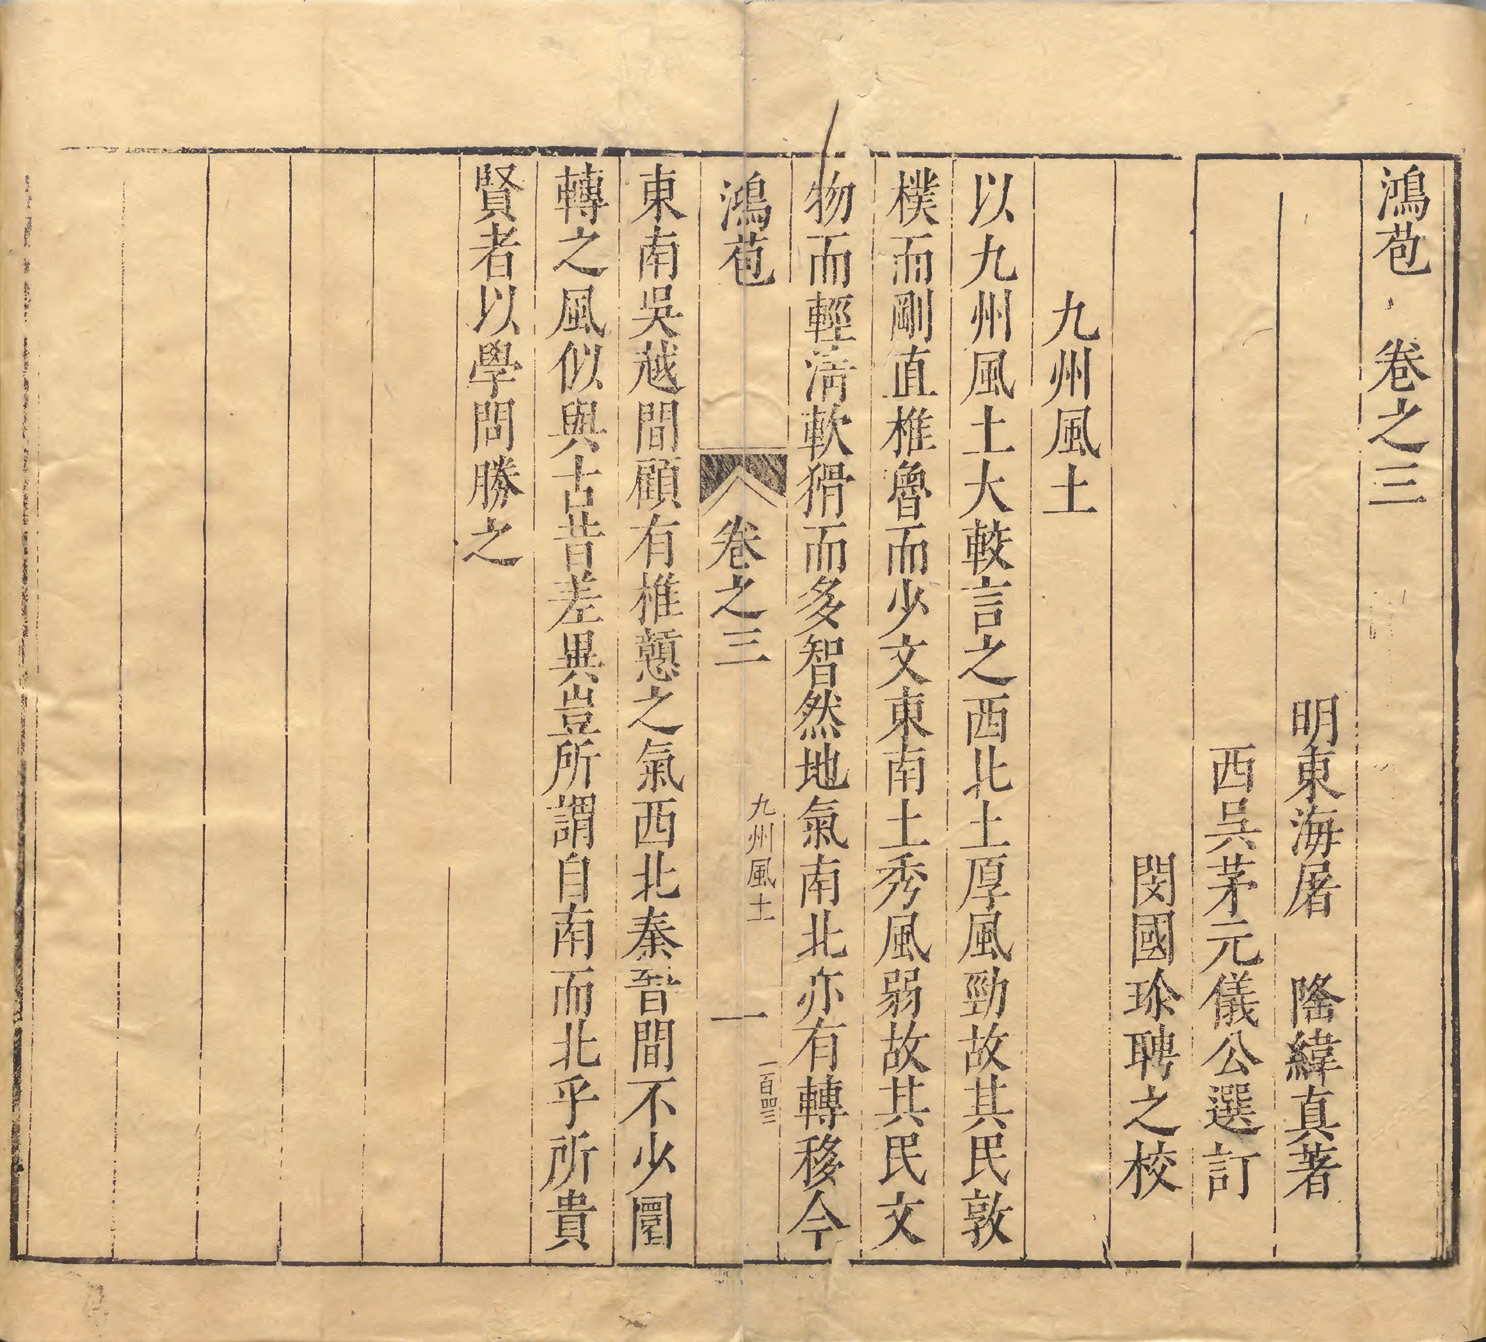 鴻苞 卷之三
明東海屠 隆緯真著
西吳茅元儀公選訂
閔國珍聘之校
九州風土
以九州風土大較言之西北土厚風勁故其民敦
樸而剛直椎魯而少文東南土秀風弱故其民文
物而輕淸軟猾而多智然地氣南北亦有轉移今
鴻苞 卷之三 九州風土 一 一百四三
東南吳越間顧有椎戇之氣西北秦晉間不少圜
轉之風似與古昔差異豈所謂自南而北乎所貴
賢者以學問勝之